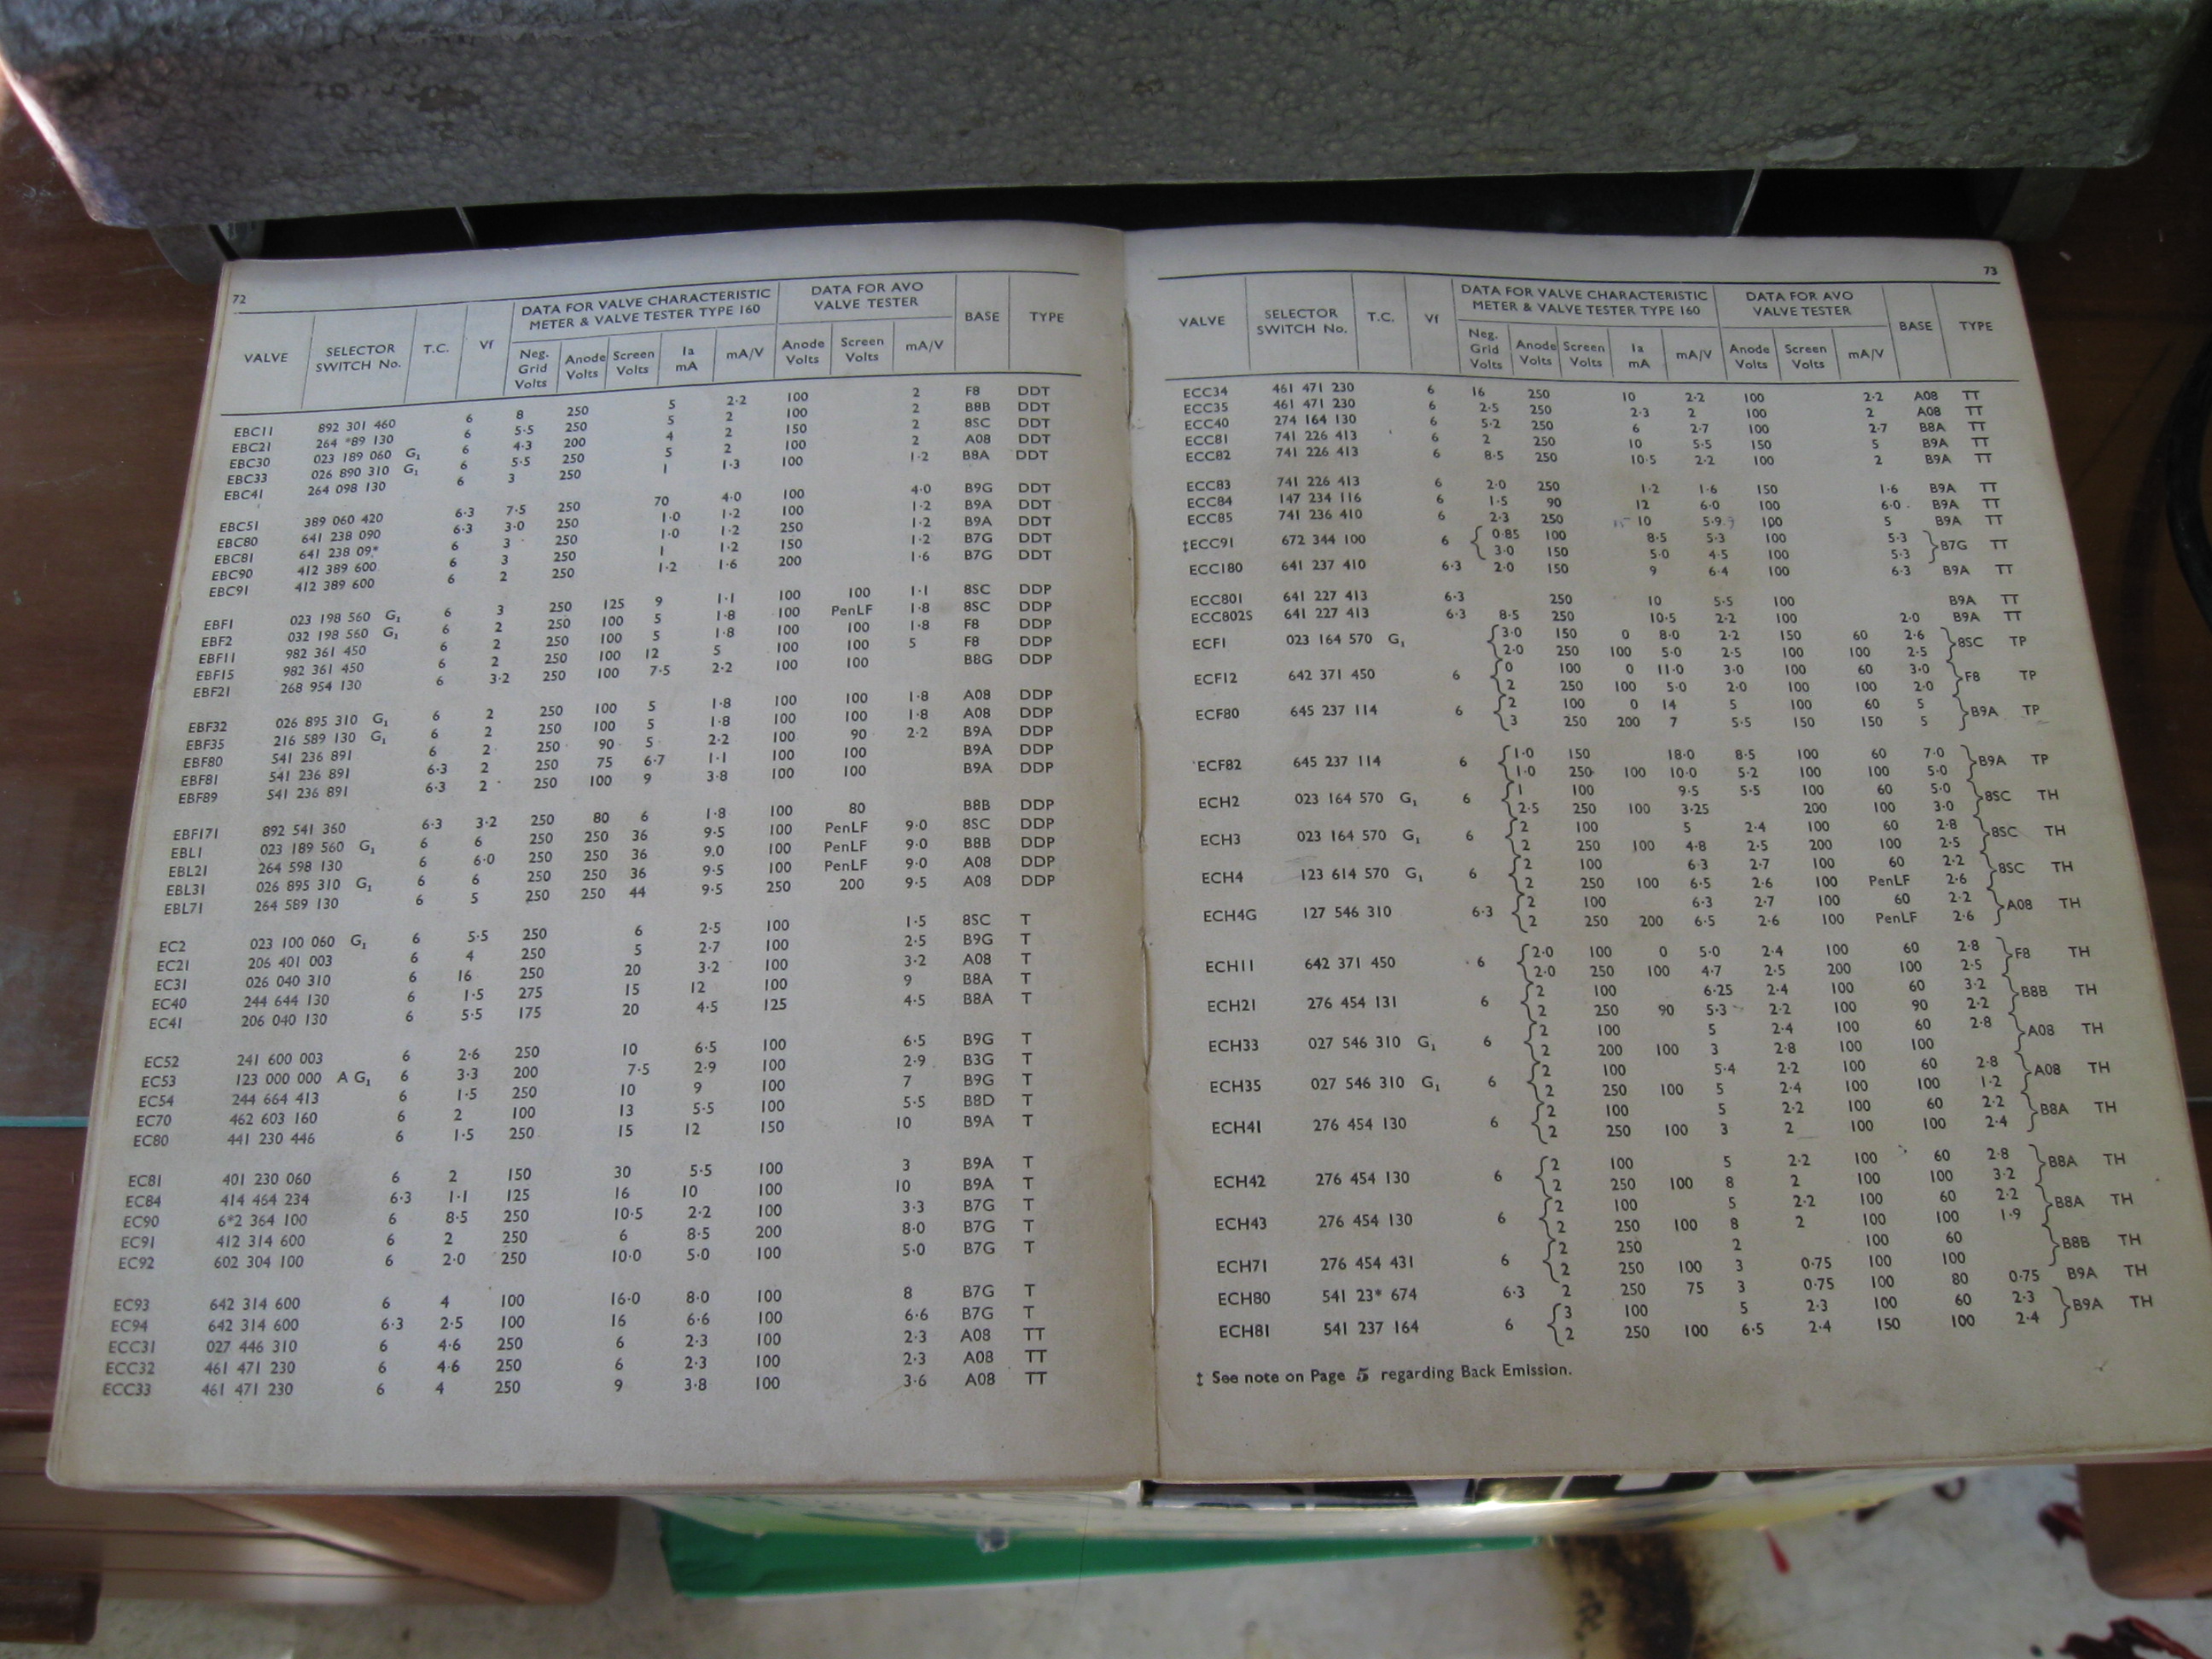 72
VALVE SELECTOR SWITCH No. T.C. Vf DATA FOR VALVE CHARACTERISTIC METER & VALVE TESTER TYPE 160 DATA FOR AVO VALVE TESTER BASE TYPE
Neg. Grid Volts Anode Volts Screen Volts Ia mA mA/V Anode Volts Screen Volts mA/V
EBC11 892 301 460 6 8 250 5 2·2 100 2 F8 DDT
EBC21 264 *89 130 6 5·5 250 5 2 100 2 B8B DDT
EBC30 023 189 060 G₁ 6 4·3 200 4 2 150 2 8SC DDT
EBC33 026 890 310 G₁ 6 5·5 250 5 2 100 2 A08 DDT
EBC41 264 098 130 6 3 250 1 1·3 100 1·2 B8A DDT
EBC51 389 060 420 6·3 7·5 250 70 4·0 100 4·0 B9G DDT
EBC80 641 238 090 6·3 3·0 250 1·0 1·2 100 1·2 B9A DDT
EBC81 641 238 09* 6 3 250 1·0 1·2 250 1·2 B9A DDT
EBC90 412 389 600 6 3 250 1 1·2 150 1·2 B7G DDT
EBC91 412 389 600 6 2 250 1·2 1·6 200 1·6 B7G DDT
EBF1 023 198 560 G₁ 6 3 250 125 9 1·1 100 100 1·1 8SC DDP
EBF2 032 198 560 G₁ 6 2 250 100 5 1·8 100 PenLF 1·8 8SC DDP
EBF11 982 361 450 6 2 250 100 5 1·8 100 100 1·8 F8 DDP
EBF15 982 361 450 6 2 250 100 12 5 100 100 5 F8 DDP
EBF21 268 954 130 6 3·2 250 100 7·5 2·2 100 100 B8G DDP
EBF32 026 895 310 G₁ 6 2 250 100 5 1·8 100 100 1·8 A08 DDP
EBF35 216 589 130 G₁ 6 2 250 100 5 1·8 100 100 1·8 A08 DDP
EBF80 541 236 891 6 2 250 90 5 2·2 100 90 2·2 B9A DDP
EBF81 541 236 891 6·3 2 250 75 6·7 1·1 100 100 B9A DDP
EBF89 541 236 891 6·3 2 250 100 9 3·8 100 100 B9A DDP
EBF171 892 541 360 6·3 3·2 250 80 6 1·8 100 80 B8B DDP
EBL1 023 189 560 G₁ 6 6 250 250 36 9·5 100 PenLF 9·0 8SC DDP
EBL21 264 598 130 6 6·0 250 250 36 9.0 100 PenLF 9·0 B8B DDP
EBL31 026 895 310 G₁ 6 6 250 250 36 9·5 100 PenLF 9·0 A08 DDP
EBL71 264 589 130 6 5 250 250 44 9·5 250 200 9·5 A08 DDP
EC2 023 100 060 G₁ 6 5·5 250 6 2·5 100 1·5 8SC T
EC21 206 401 003 6 4 250 5 2·7 100 2·5 B9G T
EC31 026 040 310 6 16 250 20 3·2 100 3·2 A08 T
EC40 244 644 130 6 1·5 275 15 12 100 9 B8A T
EC41 206 040 130 6 5·5 175 20 4·5 125 4·5 B8A T
EC52 241 600 003 6 2·6 250 10 6·5 100 6·5 B9G T
EC53 123 000 000 A G₁ 6 3·3 200 7·5 2·9 100 2·9 B3G T
EC54 244 664 413 6 1·5 250 10 9 100 7 B9G T
EC70 462 603 160 6 2 100 13 5·5 100 5·5 B8D T
EC80 441 230 446 6 1·5 250 15 12 150 10 B9A T
EC81 401 230 060 6 2 150 30 5·5 100 3 B9A T
EC84 414 464 234 6·3 1·1 125 16 10 100 10 B9A T
EC90 6*2 364 100 6 8·5 250 10·5 2·2 100 3·3 B7G T
EC91 412 314 600 6 2 250 6 8·5 200 8·0 B7G T
EC92 602 304 100 6 2·0 250 10·0 5·0 100 5·0 B7G T
EC93 642 314 600 6 4 100 16·0 8·0 100 8 B7G T
EC94 642 314 600 6·3 2·5 100 16 6·6 100 6·6 B7G T
ECC31 027 446 310 6 4·6 250 6 2·3 100 2·3 A08 TT
ECC32 461 471 230 6 4·6 250 6 2·3 100 2·3 A08 TT
ECC33 461 471 230 6 4 250 9 3·8 100 3·6 A08 TT
73
VALVE SELECTOR SWITCH No. T.C. Vf DATA FOR VALVE CHARACTERISTIC METER & VALVE TESTER TYPE 160 DATA FOR AVO VALVE TESTER BASE TYPE
Neg. Grid Volts Anode Volts Screen Volts Ia mA mA/V Anode Volts Screen Volts mA/V
ECC34 461 471 230 6 16 250 10 2·2 100 2·2 A08 TT
ECC35 461 471 230 6 2·5 250 2·3 2 100 2 A08 TT
ECC40 274 164 130 6 5·2 250 6 2·7 100 2·7 B8A TT
ECC81 741 226 413 6 2 250 10 5·5 150 5 B9A TT
ECC82 741 226 413 6 8·5 250 10·5 2·2 100 2 B9A TT
ECC83 741 226 413 6 2·0 250 1·2 1·6 150 1·6 B9A TT
ECC84 147 234 116 6 1·5 90 12 6·0 100 6·0 B9A TT
ECC85 741 236 410 6 2·3 250 10 5·9 100 5 B9A TT
‡ECC91 672 344 100 6 0·85 100 8·5 5·3 100 5·3 B7G TT
3·0 150 5·0 4·5 100 5·3
ECC180 641 237 410 6·3 2·0 150 9 6·4 100 6·3 B9A TT
ECC801 641 227 413 6·3 250 10 5·5 100 B9A TT
ECC802S 641 227 413 6·3 8·5 250 10·5 2·2 100 2·0 B9A TT
ECF1 023 164 570 G₁ 3·0 150 0 8·0 2·2 150 60 2·6 8SC TP
2·0 250 100 5·0 2·5 100 100 2·5
ECF12 642 371 450 6 0 100 0 11·0 3·0 100 60 3·0 F8 TP
2 250 100 5·0 2·0 100 100 2·0
ECF80 645 237 114 6 2 100 0 14 5 100 60 5 B9A TP
3 250 200 7 5·5 150 150 5
ECF82 645 237 114 6 1·0 150 18·0 8·5 100 60 7·0 B9A TP
1·0 250 100 10·0 5·2 100 100 5·0
ECH2 023 164 570 G₁ 6 1 100 9·5 5·5 100 60 5·0 8SC TH
2·5 250 100 3·25 200 100 3·0
ECH3 023 164 570 G₁ 6 2 100 5 2·4 100 60 2·8 8SC TH
2 250 100 4·8 2·5 200 100 2·5
ECH4 123 614 570 G₁ 6 2 100 6·3 2·7 100 60 2·2 8SC TH
2 250 100 6·5 2·6 100 PenLF 2·6
ECH4G 127 546 310 6·3 2 100 6·3 2·7 100 60 2·2 A08 TH
2 250 200 6·5 2·6 100 PenLF 2·6
ECH11 642 371 450 6 2·0 100 0 5·0 2·4 100 60 2·8 F8 TH
2·0 250 100 4·7 2·5 200 100 2·5
ECH21 276 454 131 6 2 100 6·25 2·4 100 60 3·2 B8B TH
2 250 90 5·3 2·2 100 90 2·2
ECH33 027 546 310 G₁ 6 2 100 5 2·4 100 60 2·8 A08 TH
2 200 100 3 2·8 100 100
ECH35 027 546 310 G₁ 6 2 100 5·4 2·2 100 60 2·8 A08 TH
2 250 100 5 2·4 100 100 1·2
ECH41 276 454 130 6 2 100 5 2·2 100 60 2·2 B8A TH
2 250 100 3 2 100 100 2·4
ECH42 276 454 130 6 2 100 5 2·2 100 60 2·8 B8A TH
2 250 100 8 2 100 100 3·2
ECH43 276 454 130 6 2 100 5 2·2 100 60 2·2 B8A TH
2 250 100 8 2 100 100 1·9
ECH71 276 454 431 6 2 250 2 100 60 B8B TH
2 250 100 3 0·75 100 100
ECH80 541 23* 674 6·3 2 250 75 3 0·75 100 80 0·75 B9A TH
ECH81 541 237 164 6 3 100 5 2·3 100 60 2·3 B9A TH
2 250 100 6·5 2·4 150 100 2·4
‡ See note on Page 5 regarding Back Emission.